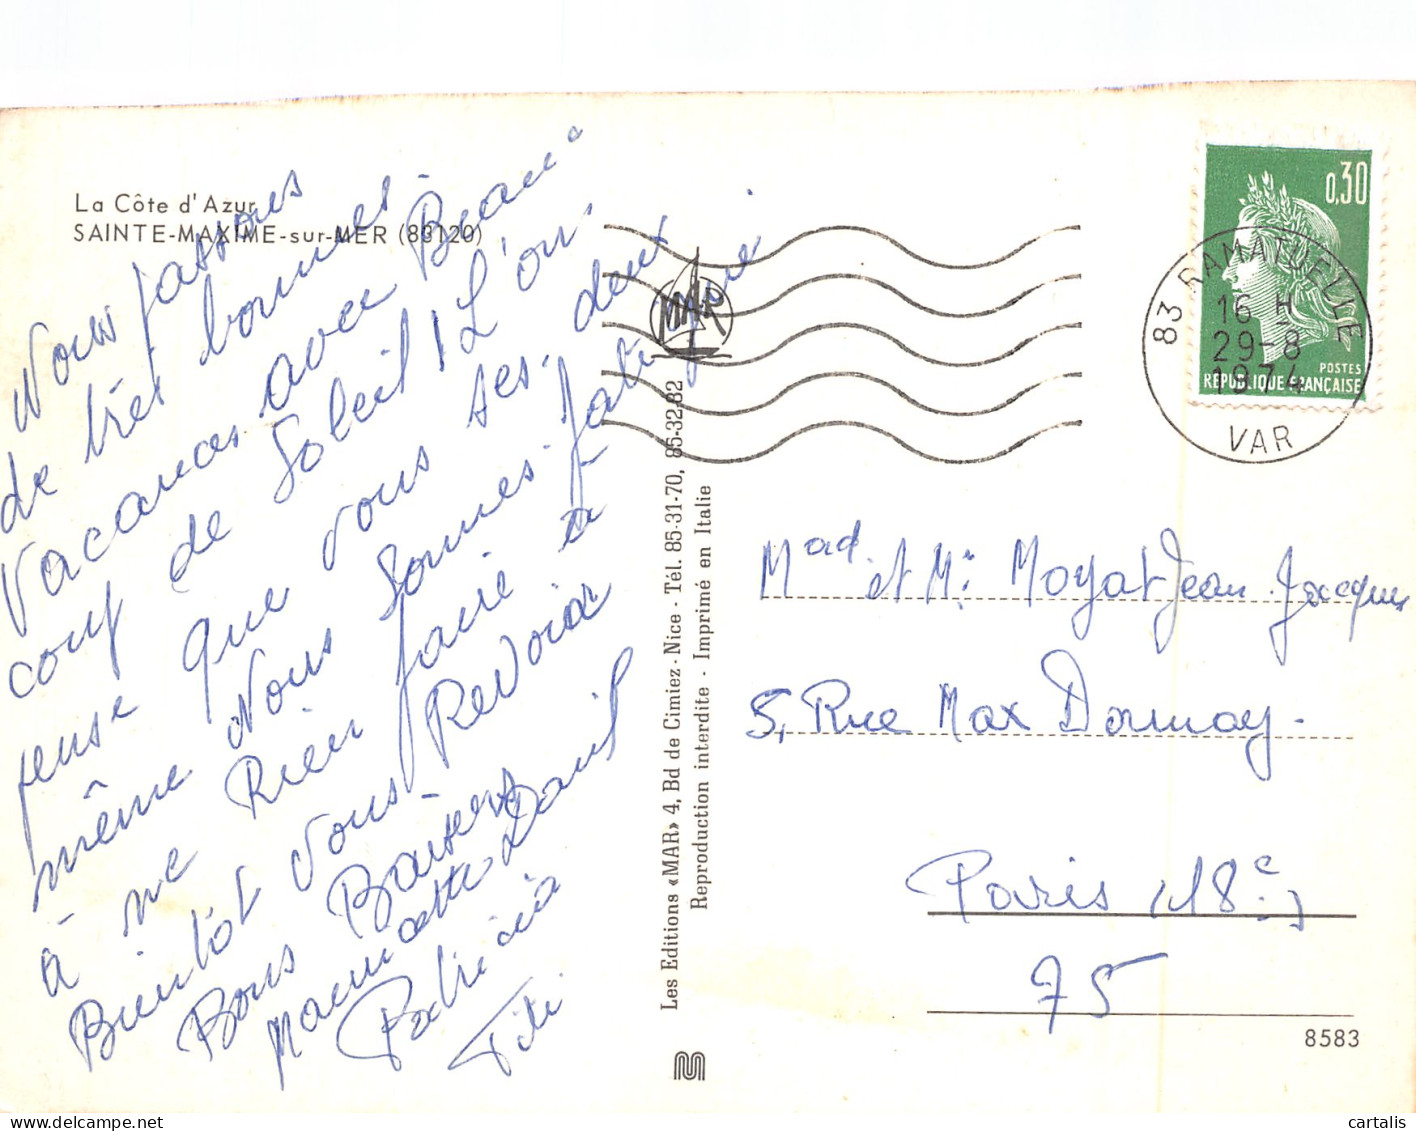 La Côte d'Azur
SAINTE-MAXIME-sur-MER (83120)
Nous passons
de très bonnes
vacances avec Beau-
coup de Soleil ! L'on
pense que vous ses. deux
même Nous Sommes fatigué
à ne Rien faire a
Bientot vous Revoir
Bons Baisers
Mamette Daniel
Patricia
Titi
Les Editions «MAR» 4, Bd de Cimiez - Nice - Tél. 85-31-70, 85-32-82
Reproduction interdite - Imprimé en Italie
MAR
0,30
POSTES
RÉPUBLIQUE FRANÇAISE
83 RAMATUELLE
16 H
29-8
1974
VAR
Mad et Mr Moyat Jean-Jacques
5, Rue Max Dormoy.
Paris (18e)
75
8583